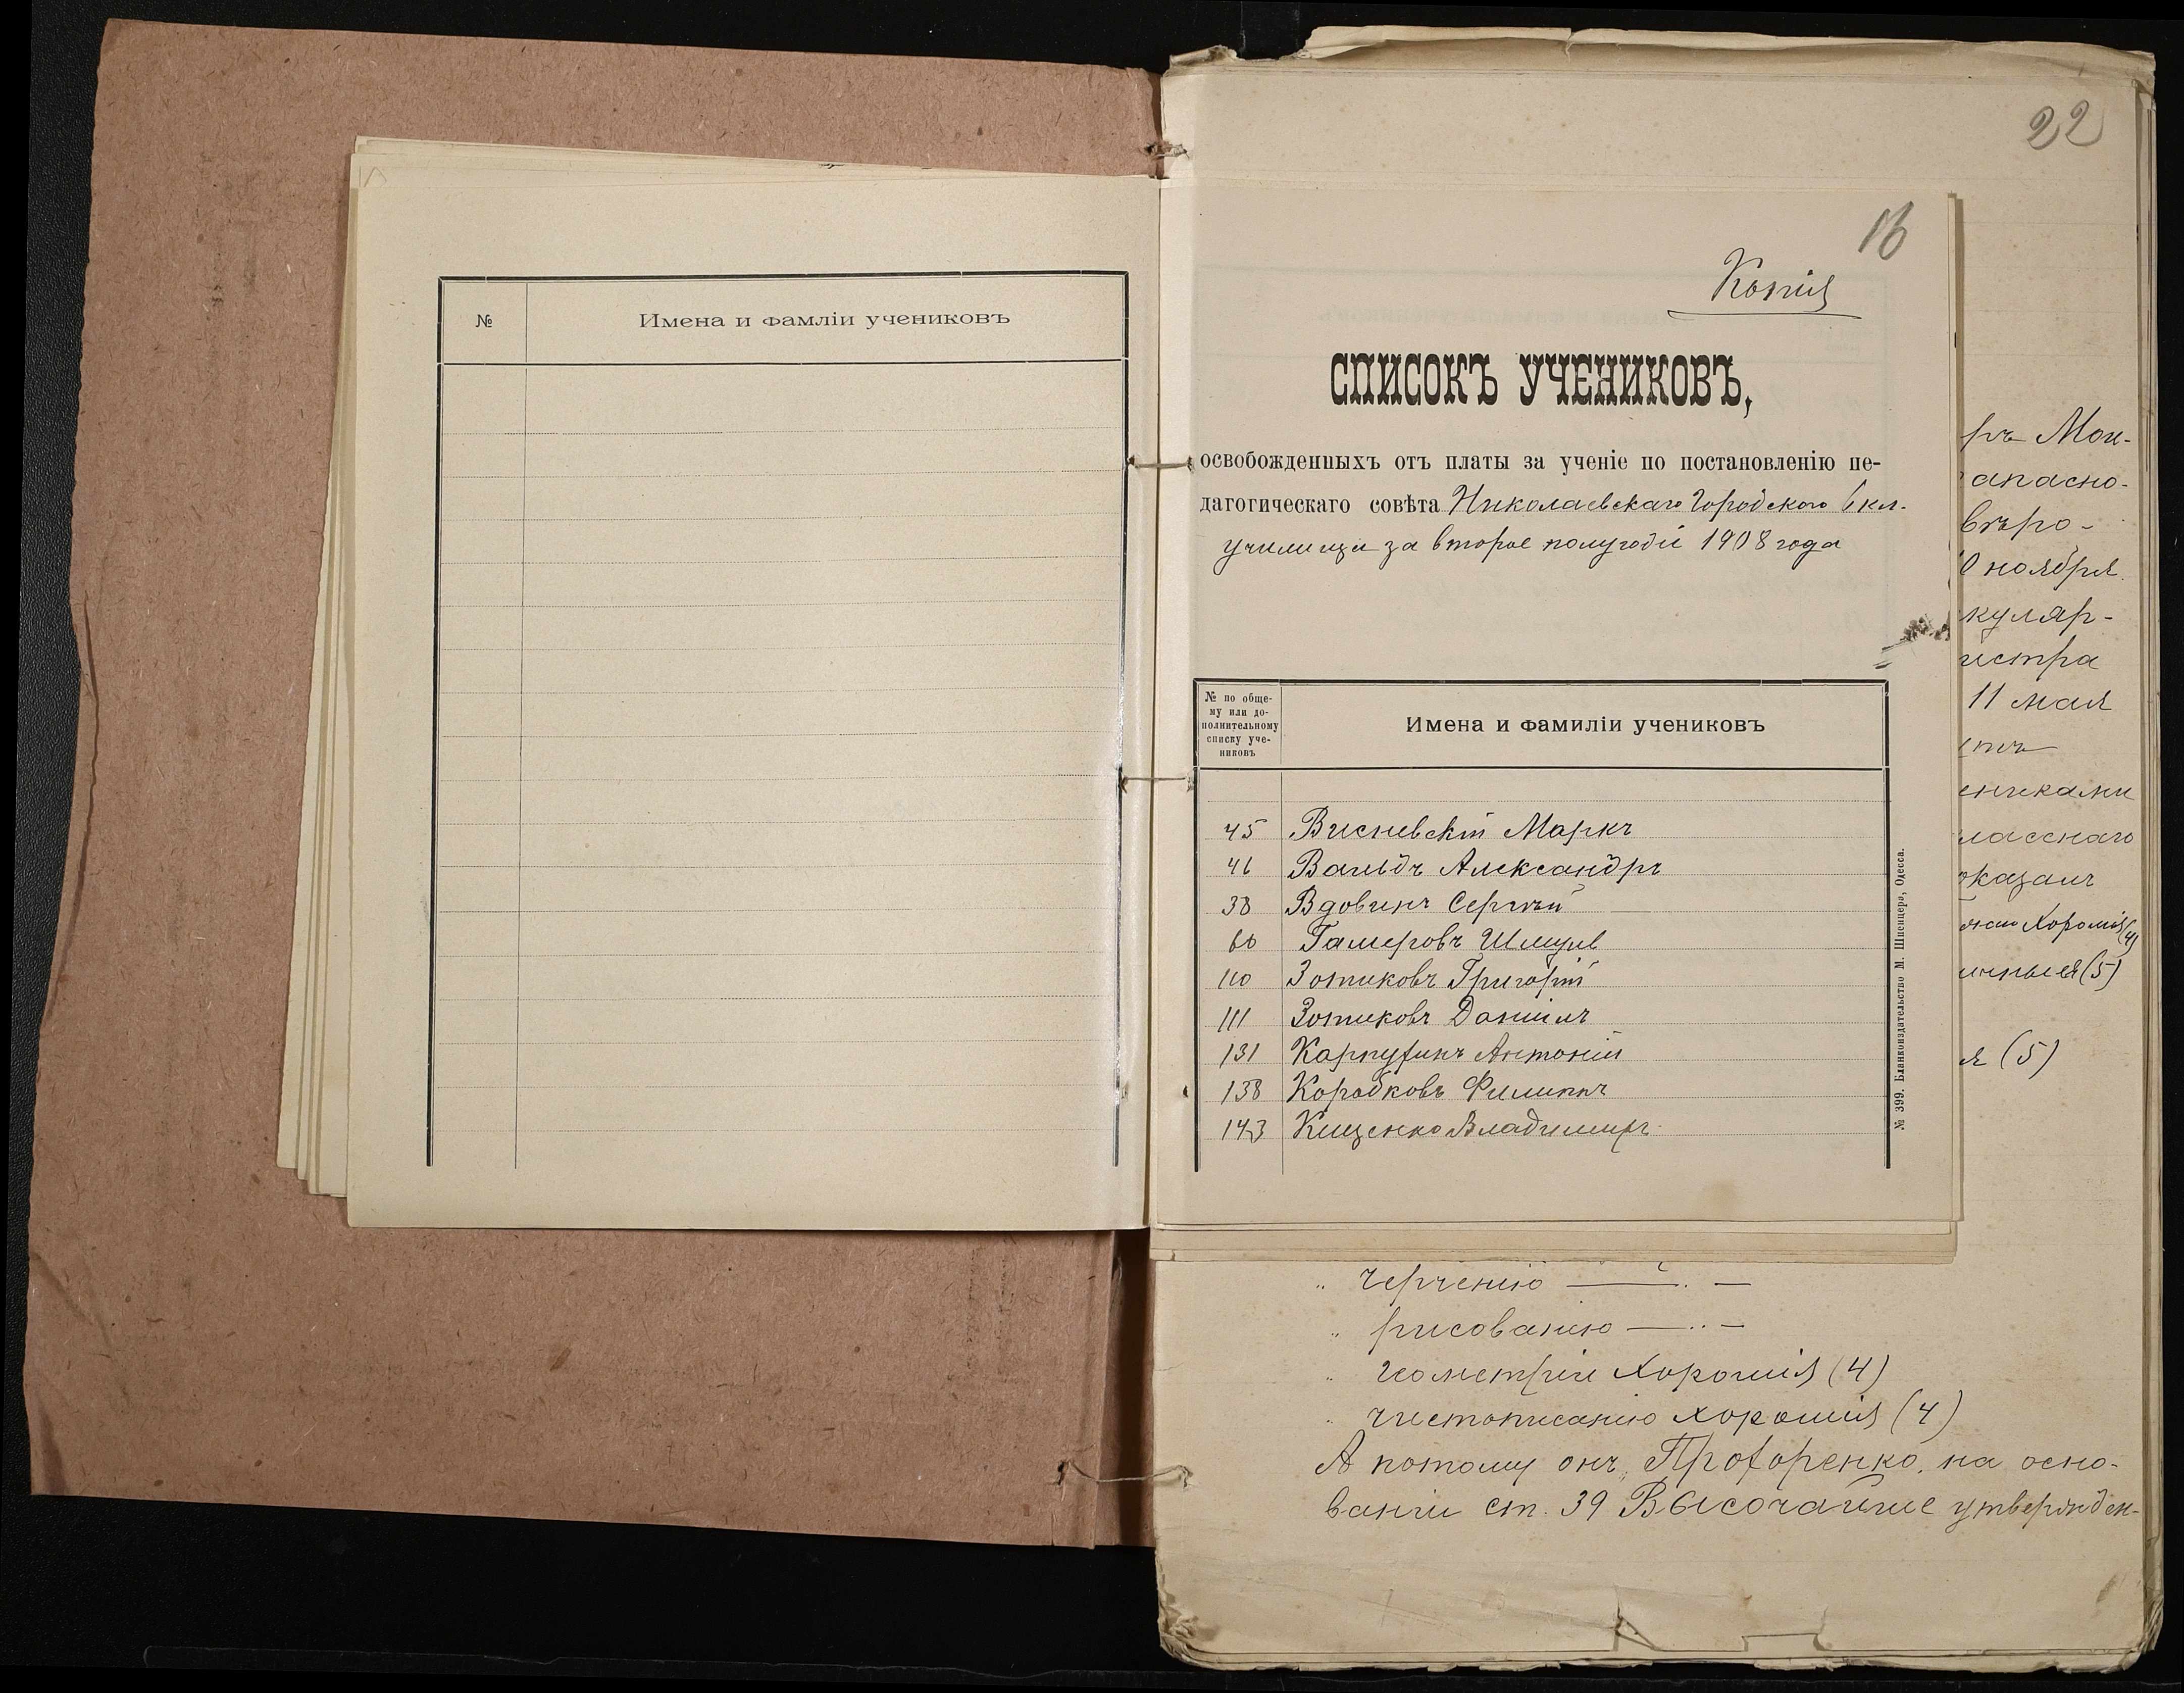 № Имена и фамліи учениковъ
22
16
Копія
СПИСОКЪ УЧЕНИКОВЪ,
освобожденныхъ отъ платы за ученіе по постановленію пе-
дагогическаго совѣта Николаевскаго Городского 6 кл.
училища за второе полугодіе 1908 года
№ по обще-
му или до-
полнительному
списку уче-
никовъ
Имена и фамиліи учениковъ
45 Висневскій Маркъ
46 Вальдъ Александръ
38 Вдовинъ Сергѣй
60 Гамеровъ Шмуль
110 Зотиковъ Григорій
111 Зотиковъ Даніилъ
131 Карпухинъ Антоній
138 Коробковъ Филиппъ
143 Кищенко Владимиръ
№ 399. Бланкоиздательство М. Шпенцера, Одесса.
ръ Мои-
апасно-
вѣро-
0 ноября
куляр-
истра
11 мая
ениками
ласснаго
оказалъ
Хорошія (4)
ичныя (5)
я (5)
„ черченію — „ —
„ рисованію — „ —
„ геометріи хорошія (4)
„ чистописанію хорошія (4)
А потому онъ, Прохоренко, на осно-
ваніи ст. 39 Высочайше утвержден-